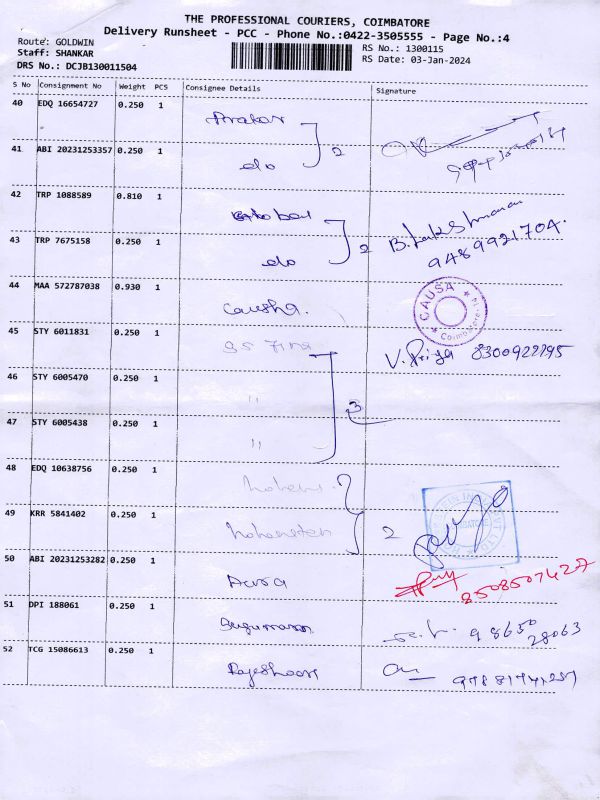 THE PROFESSIONAL COURIERS, COIMBATORE
Delivery Runsheet - PCC - Phone No.:0422-3505555 - Page No.:4
Route: GOLDWIN
RS No.: 1300115
Staff: SHANKAR
RS Date: 03-Jan-2024
DRS No.: DCJB130011504
S No Consignment No Weight PCS Consignee Details Signature
40 EDQ 16654727 0.250 1
2
41 ABI 20231253357 0.250 1 do
42 TRP 1088589 0.810 1
B. Lakshmanan
2
43 TRP 7675158 0.250 1 do 9489921704.
44 MAA 572787038 0.930 1 Causha.
CAUSA
Coimbatore-14
45 STY 6011831 0.250 1 V. Priya 8300922195
46 STY 6005470 0.250 1 "
3
47 STY 6005438 0.250 1 "
48 EDQ 10638756 0.250 1
49 KRR 5841402 0.250 1 2
50 ABI 20231253282 0.250 1 8508507427
51 DPI 188061 0.250 1 98650
28063
52 TCG 15086613 0.250 1